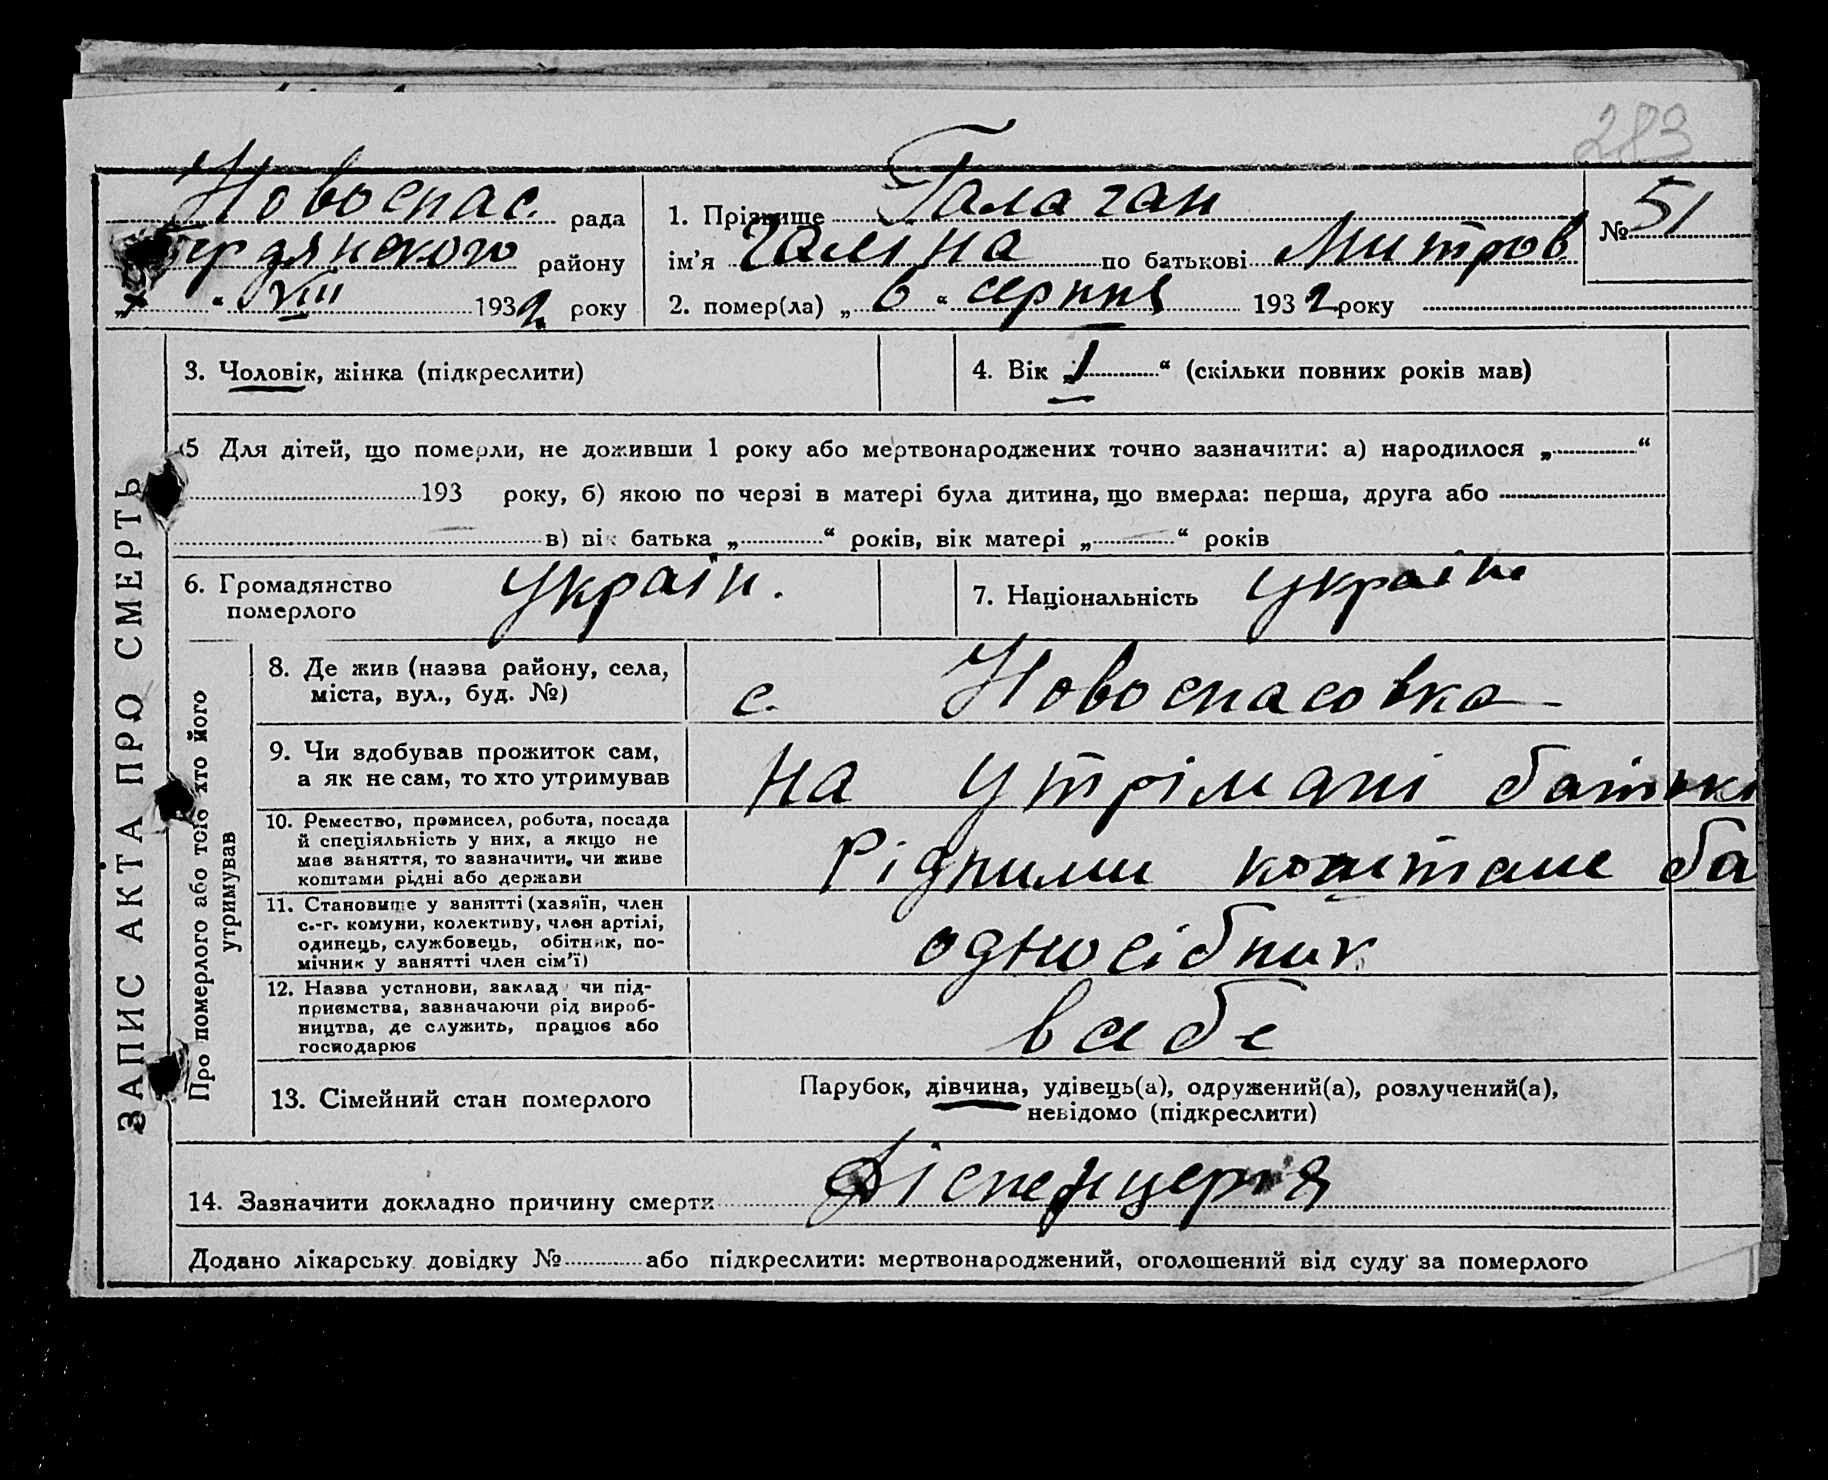 283
Новоспас. рада
Бердянского району
„7 " VIII 1932 року
1. Прізвище Галаган
ім'я Галіна по батькові Митров
2. помер(ла) „ 6 “ серпня 1932 року
№ 51
ЗАПИС АКТА ПРО СМЕРТЬ
3. Чоловік, жінка (підкреслити)
4. Вік „1“ (скільки повних років мав)
5 Для дітей, що померли, не доживши 1 року або мертвонароджених точно зазначити: а) народилося „ “
193 року, б) якою по черзі в матері була дитина, що вмерла: перша, друга або
в) вік батька „ “ років, вік матері „ “ років
6. Громадянство
померлого
Україн.
7. Національність Україн
Про померлого або того хто його
утримував
8. Де жив (назва району, села,
міста, вул., буд. №)
с. Новоспасовка
9. Чи здобував прожиток сам,
а як не сам, то хто утримував
на утрімані батьки
10. Ремество, промисел, робота, посада
й спеціяльність у них, а якщо не
має заняття, то зазначити, чи живе
коштами рідні або держави
Рідними коштами ба
11. Становище у занятті (хазяїн, член
с.-г. комуни, колективу, член артілі,
одинець, службовець, обітник, по-
мічник у занятті член сім'ї)
односібник
12. Назва установи, заклад чи під-
приємства, зазначаючи рід вироб-
ництва, де служить, працює або
господарює
в себе
13. Сімейний стан померлого
Парубок, дівчина, удівець(а), одружений(а), розлучений(а),
невідомо (підкреслити)
14. Зазначити докладно причину смерти Діспенцерія
Додано лікарську довідку № або підкреслити: мертвонароджений, оголошений від суду за померлого